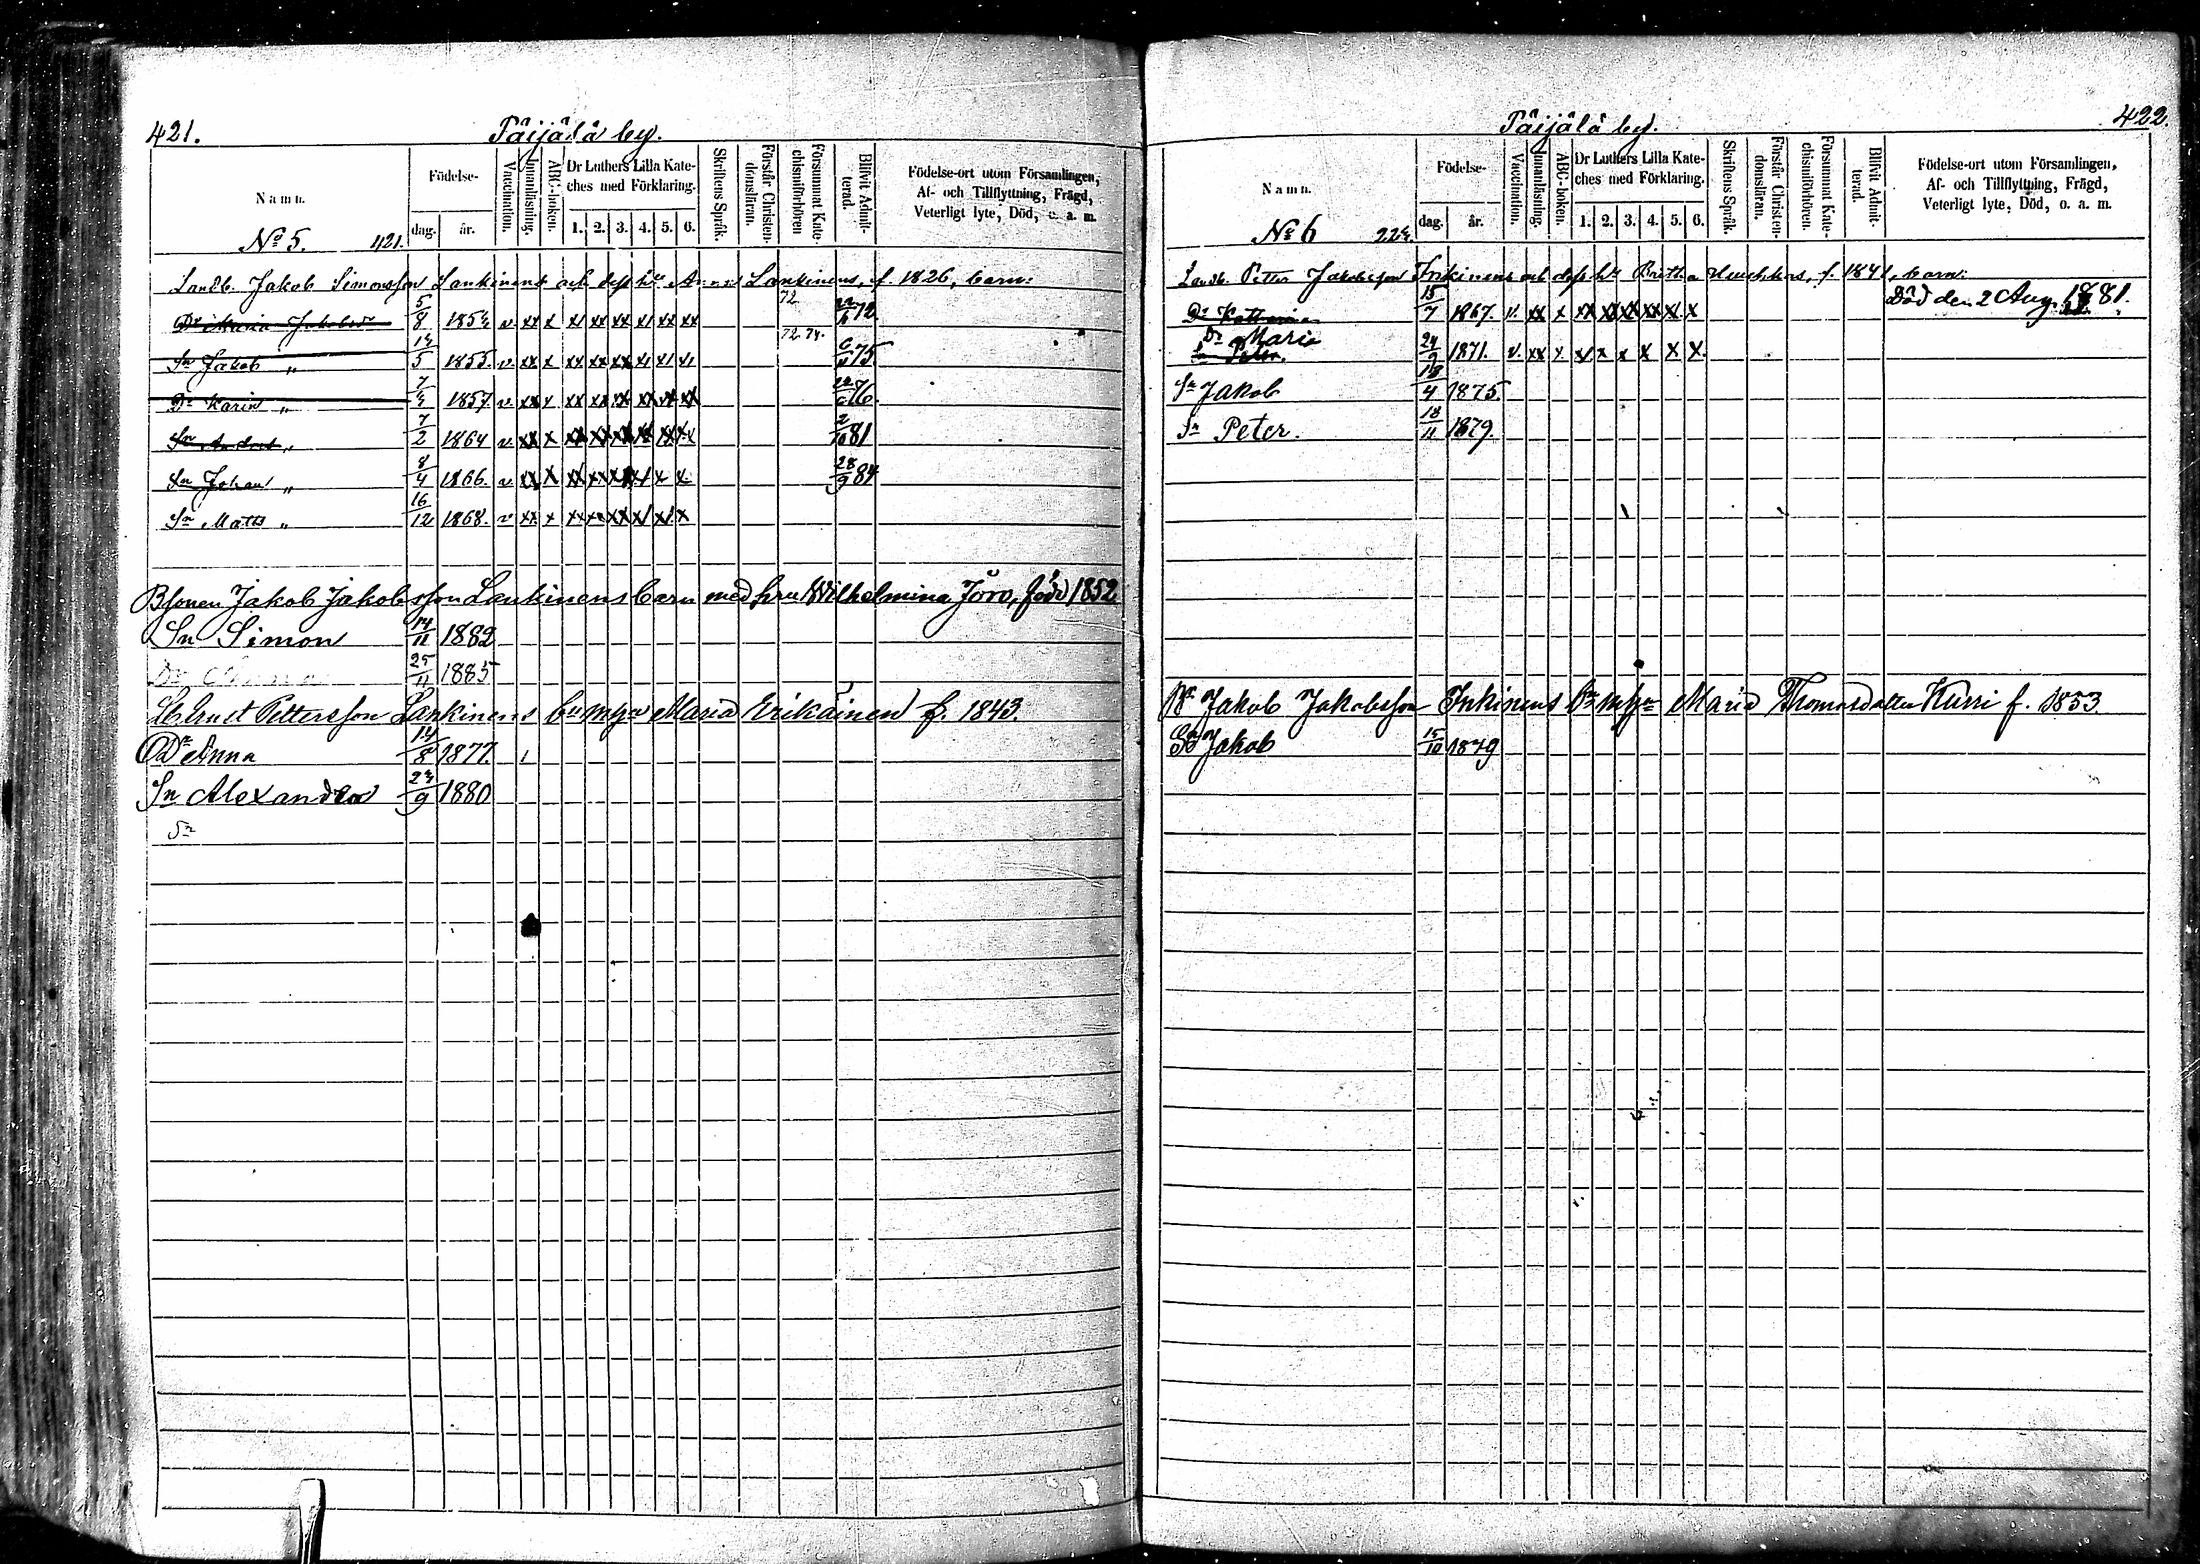 421.
Päijälä by.
Namn.
Födelse-
dag.
år.
Vaccination.
Innanläsning.
ABC-boken.
Dr Luthers Lilla Kate-
ches med Förklaring.
1. 2. 3. 4. 5. 6.
Skriftens Språk.
Förstår Christen-
domsläran.
Försummat Kate-
chismiförhören
Blifvit Admit-
terad.
Födelse-ort utom Församlingen,
Af- och Tillflyttning, Frägd,
Veterligt lyte, Död, o. a. m.
No 5. 421.
Landb. Jakob Simonsson Lankinens och dess hu Anna Lankinens, f. 1826, barn:
Dr Maria Jakobsd 5/8 1854 v. xx x x/ xx xx x/ xx xx 72 72
Sn Jakob „ 14/5 1855. v. xx x xx xx xx x/ x/ x/ 72 74. 75
Dr Karin „ 7/4 1857 v. xx x xx xx xx xx xx xx 76
Sn „ 7/2 1864 v. xx x xx xx xx xx xx xx 2/10 81
Sn Johan „ 8/4 1866. v. xx x xx xx xx x/ x x 28/9 84
Sn Matts „ 16/12 1868. v xx x xx xx xx x/ x/ x
Bsonen Jakob Jakobsson Lankinens barn med hru Wilhelmina Joro, född 1852
Sn Simon 14/11 1882
Dr 25/11 1885
Ernst Pettersson Lankinens bn m hru Maria Erikäinen f. 1843.
Dr Anna 14/8 1877.
Sn Alexander 24/9 1880
Sn
422.
Päijälä by.
Namn.
Födelse-
dag.
år.
Vaccination.
Innanläsning.
ABC-boken.
Dr Luthers Lilla Kate-
ches med Förklaring.
1. 2. 3. 4. 5. 6.
Skriftens Språk.
Förstår Christen-
domsläran.
Försummat Kate-
chismiförhören.
Blifvit Admit-
terad.
Födelse-ort utom Församlingen,
Af- och Tillflyttning, Frägd,
Veterligt lyte, Död, o. a. m.
No 6 224.
Landb. Petter Jakobsson Inkinens och dess hu Britha f. 1841, barn:
Dr Katharina 15/7 1867. v. xx x xx xx xx xx x/ x Död den 2 Aug. 1881.
Dr Maria
24/9 1871. v. xx x. x/ x x x x x.
Sn Jakob 18/4 1875.
Sn Peter. 18/11 1879.
Jakob Jakobsson Inkinens bn m hru Maria Thomasdotter Kurri f. 1853.
Sn Jakob 15/10 1879